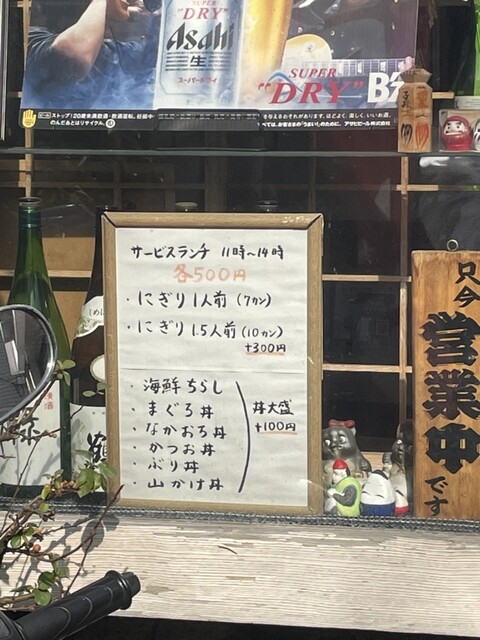 SUPER
"DRY"
Asahi
生
スーパードライ
SUPER
"DRY"
ストップ!20歳未満飲酒・飲酒運転。
のんだあとはリサイクル。
サービスランチ 11時~14時
各500円
・にぎり1人前(7カン)
・にぎり1.5人前(10カン)
+300円
・海鮮ちらし
・まぐろ丼
・なかおち丼
・かつお丼
・ぶり丼
・山かけ丼
丼大盛
+100円
只今
営業中
です
鶴